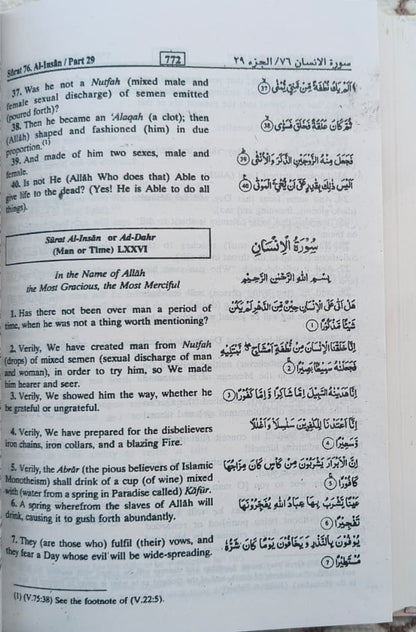 Sûrat 76. Al-Insân / Part 29
772
سورة الإنسان ٧٦/ الجزء ٢٩
37. Was he not a Nutfah (mixed male and
female sexual discharge) of semen emitted
(poured forth)?
38. Then he became an 'Alaqah (a clot); then
(Allâh) shaped and fashioned (him) in due
proportion.(1)
39. And made of him two sexes, male and
female.
40. Is not He (Allâh Who does that) Able to
give life to the dead? (Yes! He is Able to do all
things).
Sûrat Al-Insân or Ad-Dahr
(Man or Time) LXXVI
In the Name of Allâh
the Most Gracious, the Most Merciful
1. Has there not been over man a period of
time, when he was not a thing worth mentioning?
2. Verily, We have created man from Nutfah
(drops) of mixed semen (sexual discharge of man
and woman), in order to try him, so We made
him hearer and seer.
3. Verily, We showed him the way, whether he
be grateful or ungrateful.
4. Verily, We have prepared for the disbelievers
iron chains, iron collars, and a blazing Fire.
5. Verily, the Abrâr (the pious believers of Islamic
Monotheism) shall drink of a cup (of wine) mixed
with (water from a spring in Paradise called) Kâfûr.
6. A spring wherefrom the slaves of Allâh will
drink, causing it to gush forth abundantly.
7. They (are those who) fulfil (their) vows, and
they fear a Day whose evil will be wide-spreading.
أَلَمْ يَكُ نُطْفَةً مِّن مَّنِيٍّ يُمْنَىٰ ﴿٣٧﴾
ثُمَّ كَانَ عَلَقَةً فَخَلَقَ فَسَوَّىٰ ﴿٣٨﴾
فَجَعَلَ مِنْهُ الزَّوْجَيْنِ الذَّكَرَ وَالْأُنثَىٰ ﴿٣٩﴾
أَلَيْسَ ذَٰلِكَ بِقَادِرٍ عَلَىٰ أَن يُحْيِيَ الْمَوْتَىٰ ﴿٤٠﴾
سُورَةُ الْإِنسَانِ
بِسْمِ اللَّهِ الرَّحْمَٰنِ الرَّحِيمِ
هَلْ أَتَىٰ عَلَى الْإِنسَانِ حِينٌ مِّنَ الدَّهْرِ لَمْ يَكُن
شَيْئًا مَّذْكُورًا ﴿١﴾
إِنَّا خَلَقْنَا الْإِنسَانَ مِن نُّطْفَةٍ أَمْشَاجٍ نَّبْتَلِيهِ
فَجَعَلْنَاهُ سَمِيعًا بَصِيرًا ﴿٢﴾
إِنَّا هَدَيْنَاهُ السَّبِيلَ إِمَّا شَاكِرًا وَإِمَّا كَفُورًا ﴿٣﴾
إِنَّا أَعْتَدْنَا لِلْكَافِرِينَ سَلَاسِلَا وَأَغْلَالًا
وَسَعِيرًا ﴿٤﴾
إِنَّ الْأَبْرَارَ يَشْرَبُونَ مِن كَأْسٍ كَانَ مِزَاجُهَا
كَافُورًا ﴿٥﴾
عَيْنًا يَشْرَبُ بِهَا عِبَادُ اللَّهِ يُفَجِّرُونَهَا
تَفْجِيرًا ﴿٦﴾
يُوفُونَ بِالنَّذْرِ وَيَخَافُونَ يَوْمًا كَانَ شَرُّهُ
مُسْتَطِيرًا ﴿٧﴾
(1) (V.75:38) See the footnote of (V.22:5).